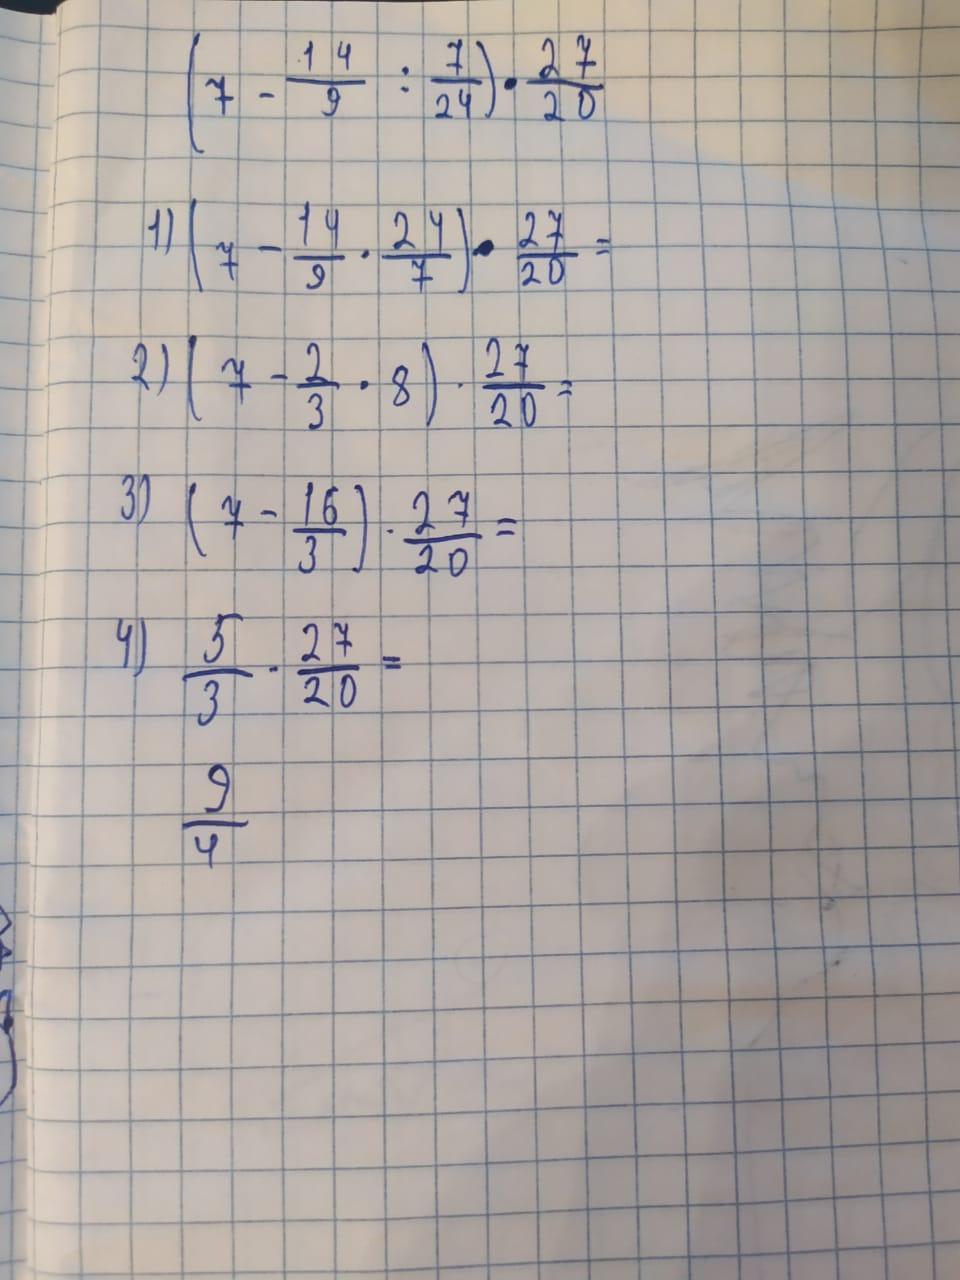 (7 - 14/9 : 7/24) • 27/20
1) (7 - 14/9 · 24/7) • 27/20 =
2) (7 - 2/3 · 8) · 27/20 =
3) (7 - 16/3) · 27/20 =
4) 5/3 · 27/20 =
9/4